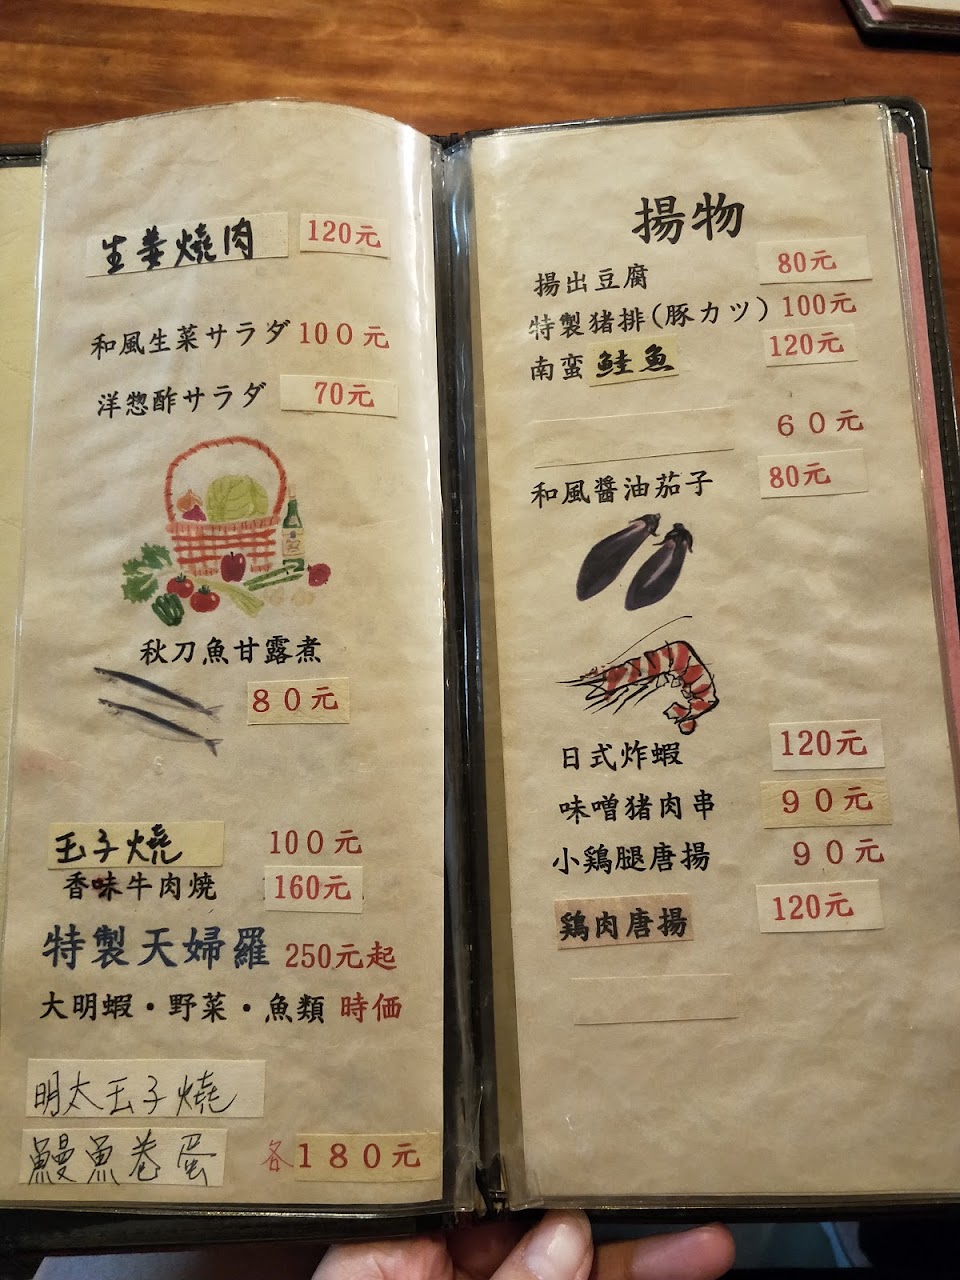 生姜燒肉 120元
和風生菜サラダ 100元
洋惣酢サラダ 70元
秋刀魚甘露煮
80元
玉子燒 100元
香味牛肉焼 160元
特製天婦羅 250元起
大明蝦・野菜・魚類 時価
明太玉子燒
鰻魚卷蛋 各180元
揚物
揚出豆腐 80元
特製猪排(豚カツ) 100元
南蛮鮭魚 120元
60元
和風醬油茄子 80元
日式炸蝦 120元
味噌猪肉串 90元
小鶏腿唐揚 90元
鶏肉唐揚 120元